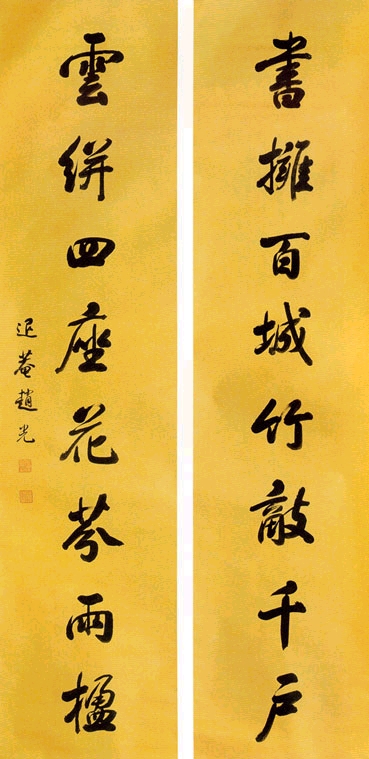 書擁百城竹敲千户
雲絣四座花芬兩楹
退菴趙光